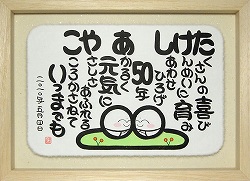 たくさんの喜び
けんめいに育み
しあわせひろげ
50年
あかるく元気に
やさしさあふれる
こころかさねて
いつまでも